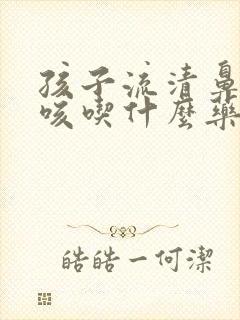 孩子流清鼻
咳喫什麼藥
皓皓一何潔